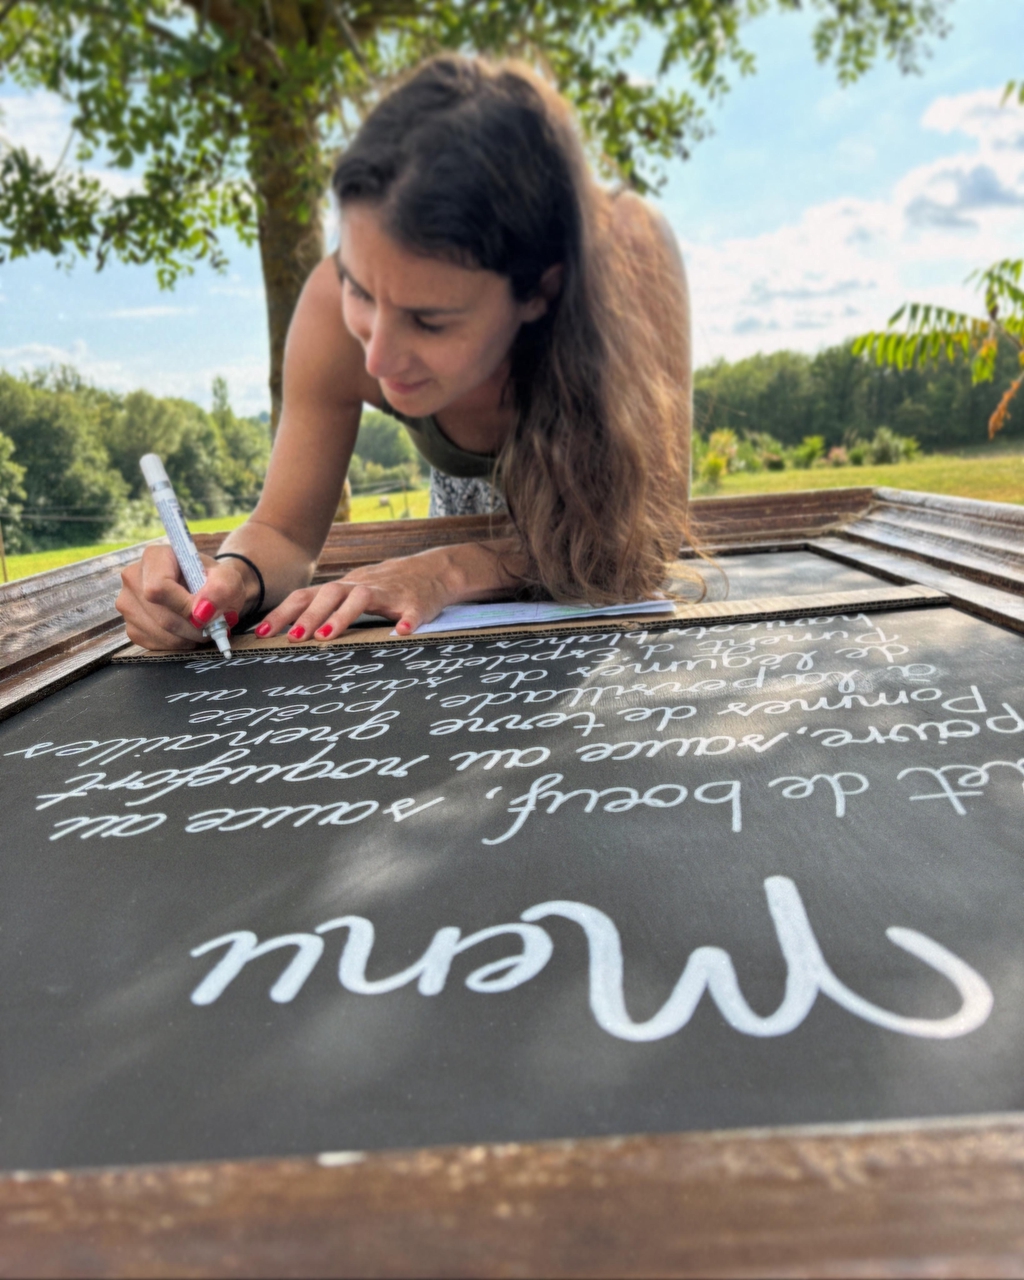 Menu
de boeuf, sauce au
poivre, sauce au roquefort
Pommes de terre grenailles
à la persillade, poêlée
de légumes de saison au
Piment d'Espelette et
haricots blancs à la tomate